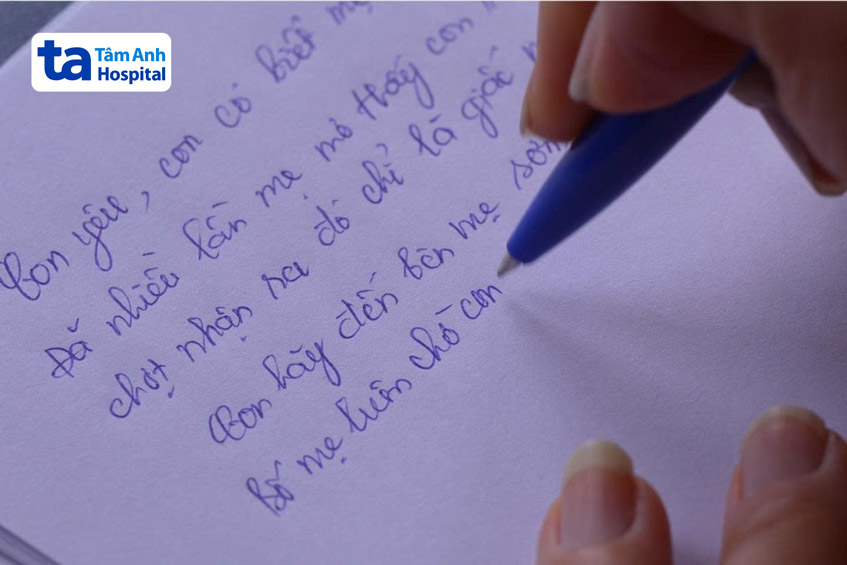 ta Tâm Anh
Hospital
Con yêu, con có biết mẹ
Đã nhiều lần mẹ mơ thấy con
chợt nhận ra đó chỉ là giấc
Con hãy đến bên mẹ sớm
Bố mẹ luôn chờ con